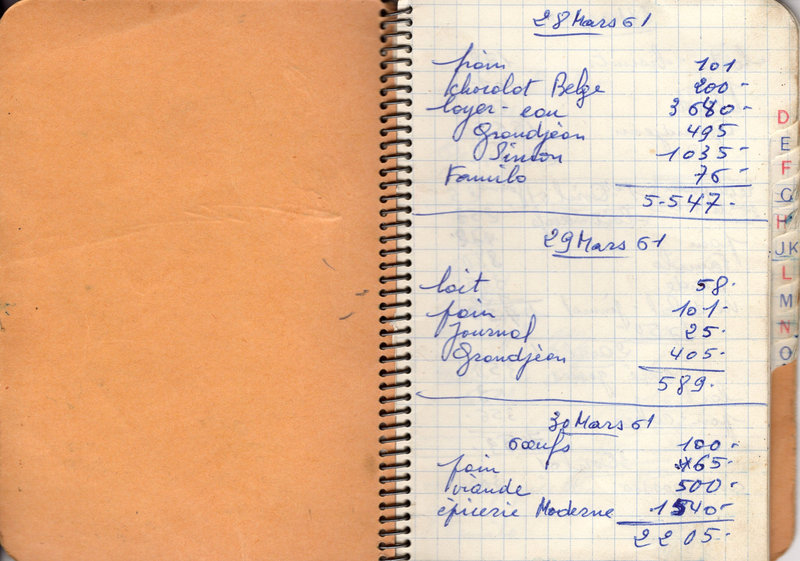 28 Mars 61
pain 101
chocolat Belge 200-
loyer-eau 3640-
Grandjean 495
Simon 1035-
Familo 76-
5.547-
29 Mars 61
lait 58.
pain 101-
Journal 25.
Grandjean 405.
589.
30 Mars 61
6 œufs 100-
pain 65.
viande 500-
épicerie Moderne 1540-
2205.
D
E
F
G
H
JK
L
M
N
O